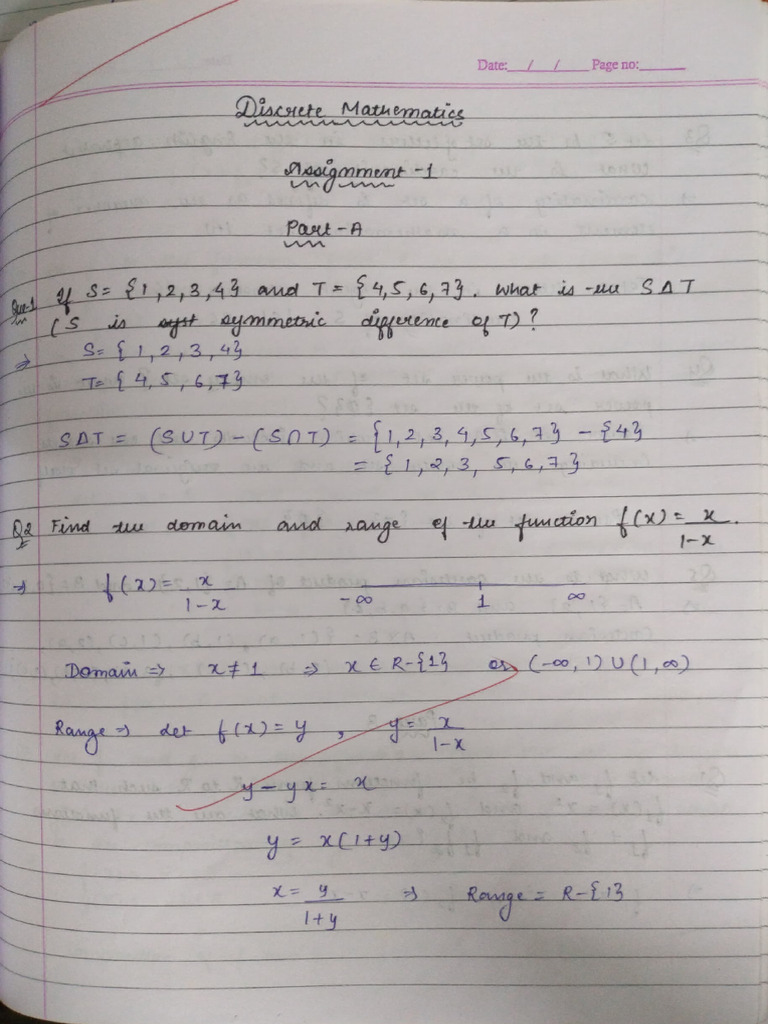 Date: __/__/__ Page no: ______
Discrete Mathematics
Assignment -1
Part-A
Que-1 If S= {1,2,3,4} and T= {4,5,6,7}. What is the S Δ T
(S is syst symmetric difference of T)?
⇒ S= {1,2,3,4}
T= {4,5,6,7}
SΔT = (SUT) - (S∩T) = {1,2,3,4,5,6,7} - {4}
= {1,2,3, 5,6,7}
Q2 Find the domain and range of the function f(x)= x/1-x.
⇒ f(x)= x/1-x -∞ 1 ∞
Domain ⇒ x≠1 ⇒ x ∈ R-{1} or (-∞,1) U (1,∞)
Range ⇒ Let f(x)= y , y= x/1-x
y - yx = x
y = x(1+y)
x= y/1+y ⇒ Range = R-{1}